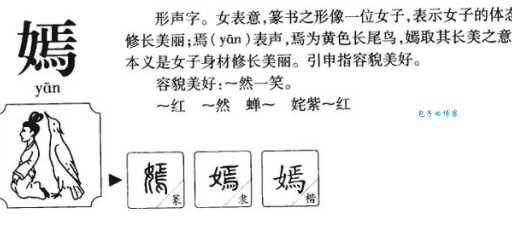 嫣
yān
形声字。女表意,篆书之形像一位女子,表示女子的体态
修长美丽;焉(yān)表声,焉为黄色长尾鸟,嫣取其长美之意。
本义是女子身材修长美丽。引申指容貌美好。
容貌美好:～然一笑。
～红 ～然 蝉～ 姹紫～红
包子的博客
嫣 嫣 嫣
篆 隶 楷